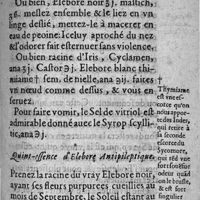 Ou bien, Elebore noir ʒj. mastich,
ʒß. mellez ensemble & le liez en vn
linge deslié, mettez-le à macerer en
eau de peoine: Iceluy aproché du nez
& l'odorer fait esternuer sans violence.
Ou bien racine d'Iris, Cyclamen,
ana ʒj. Castor ℈j. Elebore blanc thi-
niame † sem. de nielle, ana ℈ij. faites
vn nœud comme dessus, & vous en
seruez.
Pour faire vomir, le Sel de vitriol est
admirable donné auec le Syrop scylli-
tic, ana ℈j.
Quint-essence d'Elebore Antipileptique.
Prenez la racine du vray Elebore noir,
ayant ses fleurs purpurees cueillies au
mois de Septembre, le Soleil estant au
† Thymiame
est vne es-
corce qu'on
nous appor-
te des Indes,
qui retire à
la seconde
escorce du
Sycomore,
qui est vis-
queuse
quand on
le brusle,
& est fort
singulier